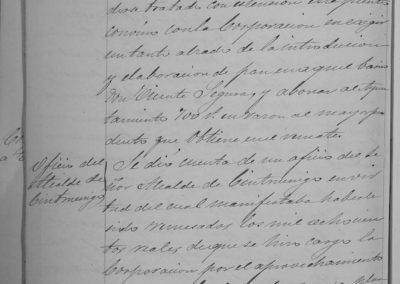 tratado con estension el espediente
convino con la Corporacion en exigir
un tanto alzado de la introduccion
y elaboracion de pan en aquel barrio
Don Vicente Segura, y abonar al Ayun
tamiento 700 r. en razon al mayor pro
ducto que obtiene en el remate.
Oficio del
Alcalde de
Cintruenigo
Se dio cuenta de un oficio del Se
ñor Alcalde de Cintruenigo en vir
tud del cual manifestaba haberle
sido remesados los mil ochocien
tos reales de que se hizo cargo la
Corporacion por el aprovechamiento